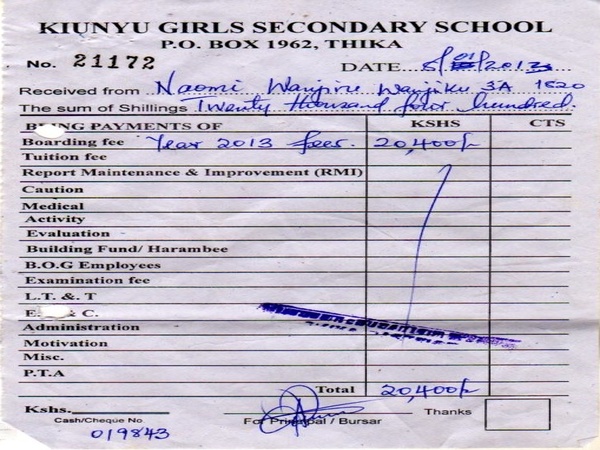 KIUNYU GIRLS SECONDARY SCHOOL
P.O. BOX 1962, THIKA
No. 21172 DATE 2013
Received from Naomi Wanjiru Wanjiku 3A 1620
The sum of Shillings Twenty thousand four hundred.
BEING PAYMENTS OF KSHS CTS
Boarding fee Year 2013 fees. 20,400/-
Tuition fee
Report Maintenance & Improvement (RMI)
Caution
Medical
Activity
Evaluation
Building Fund/ Harambee
B.O.G Employees
Examination fee
L.T. &. T
E. & C.
Administration
Motivation
Misc.
P.T.A
Total 20,400/-
Kshs. Thanks
Cash/Cheque No For Principal / Bursar
019843